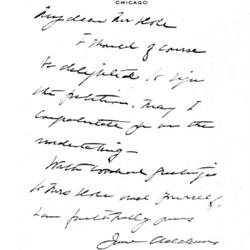 CHICAGO
My dear Mr Hole
I should of course
be delighted to sign
the petition. May I
congratulate you on the
undertaking—
With cordial greetings
to Mrs Hole and yourself,
I am faithfully yours
Jane Addams